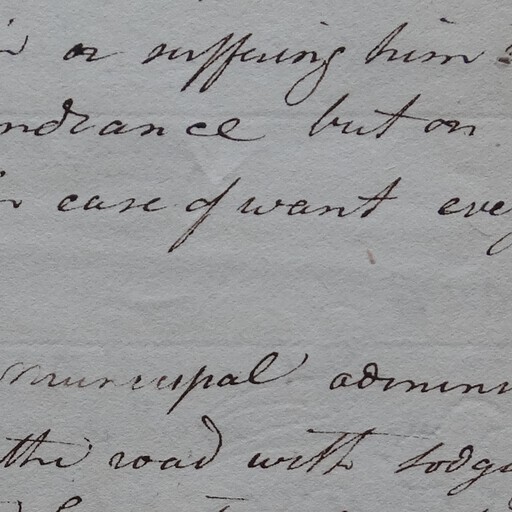 or suffering him
ndrance but on
in case of want eve
municipal admini
the road with lodgi